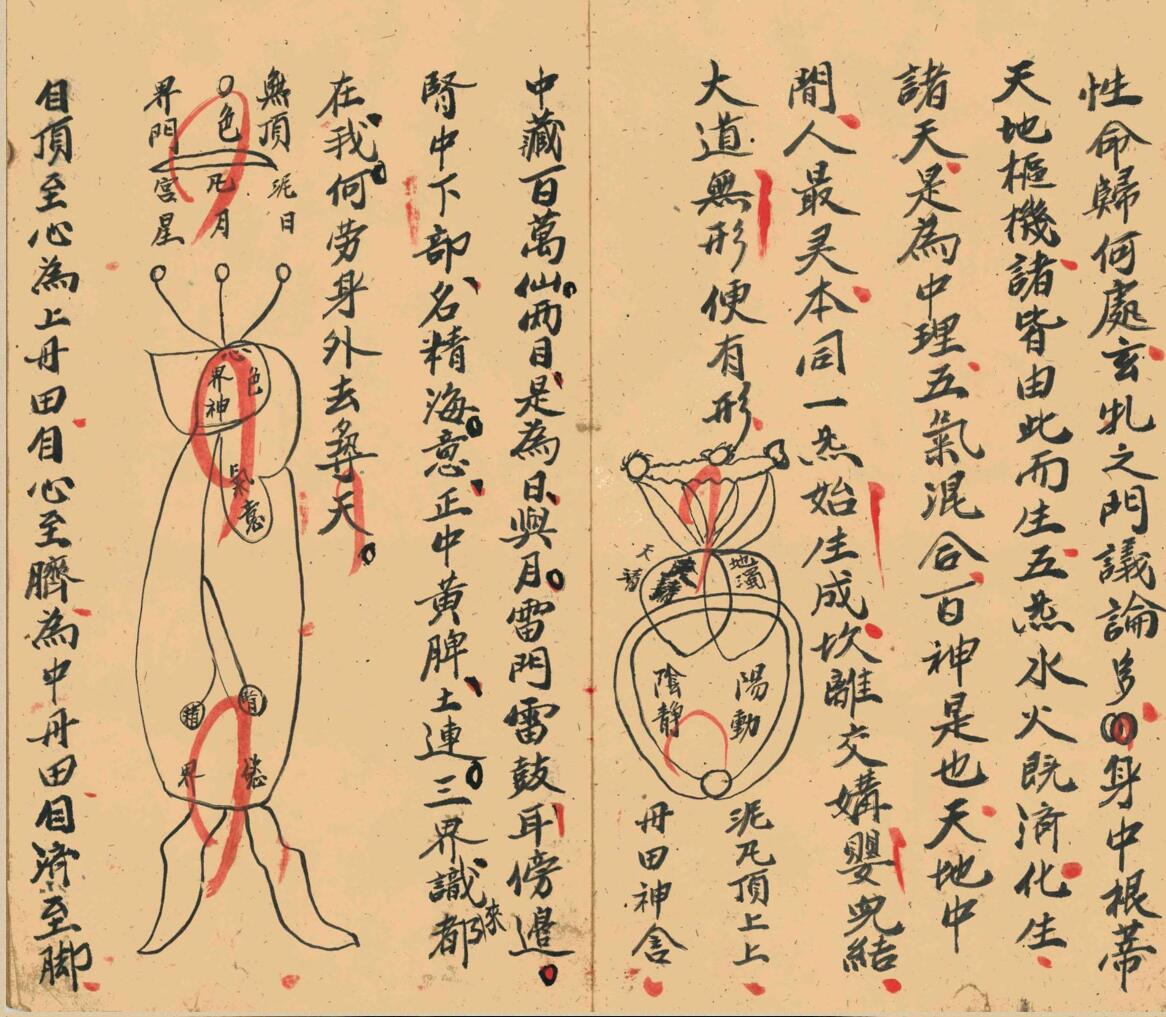 性命歸何處玄牝之門議論多身中根蒂
天地樞機諸皆由此而生五炁水火既濟化生
諸天是為中理五氣混合百神是也天地中
間人最灵本同一炁始生成坎離交媾嬰兒結
大道無形便有形
天清
地濁
陽動
陰靜
泥丸頂上上
丹田神舍
中藏百萬仙兩目是為日與月雷門雷鼓耳傍邊
腎中下部名精海意正中黃脾土連三界識來都
在我何劳身外去尋天
無頂
色
界門
泥日
丸月
宮星
心
色
界神
氣
精
界
慾
自頂至心為上丹田自心至臍為中丹田自濟至脚